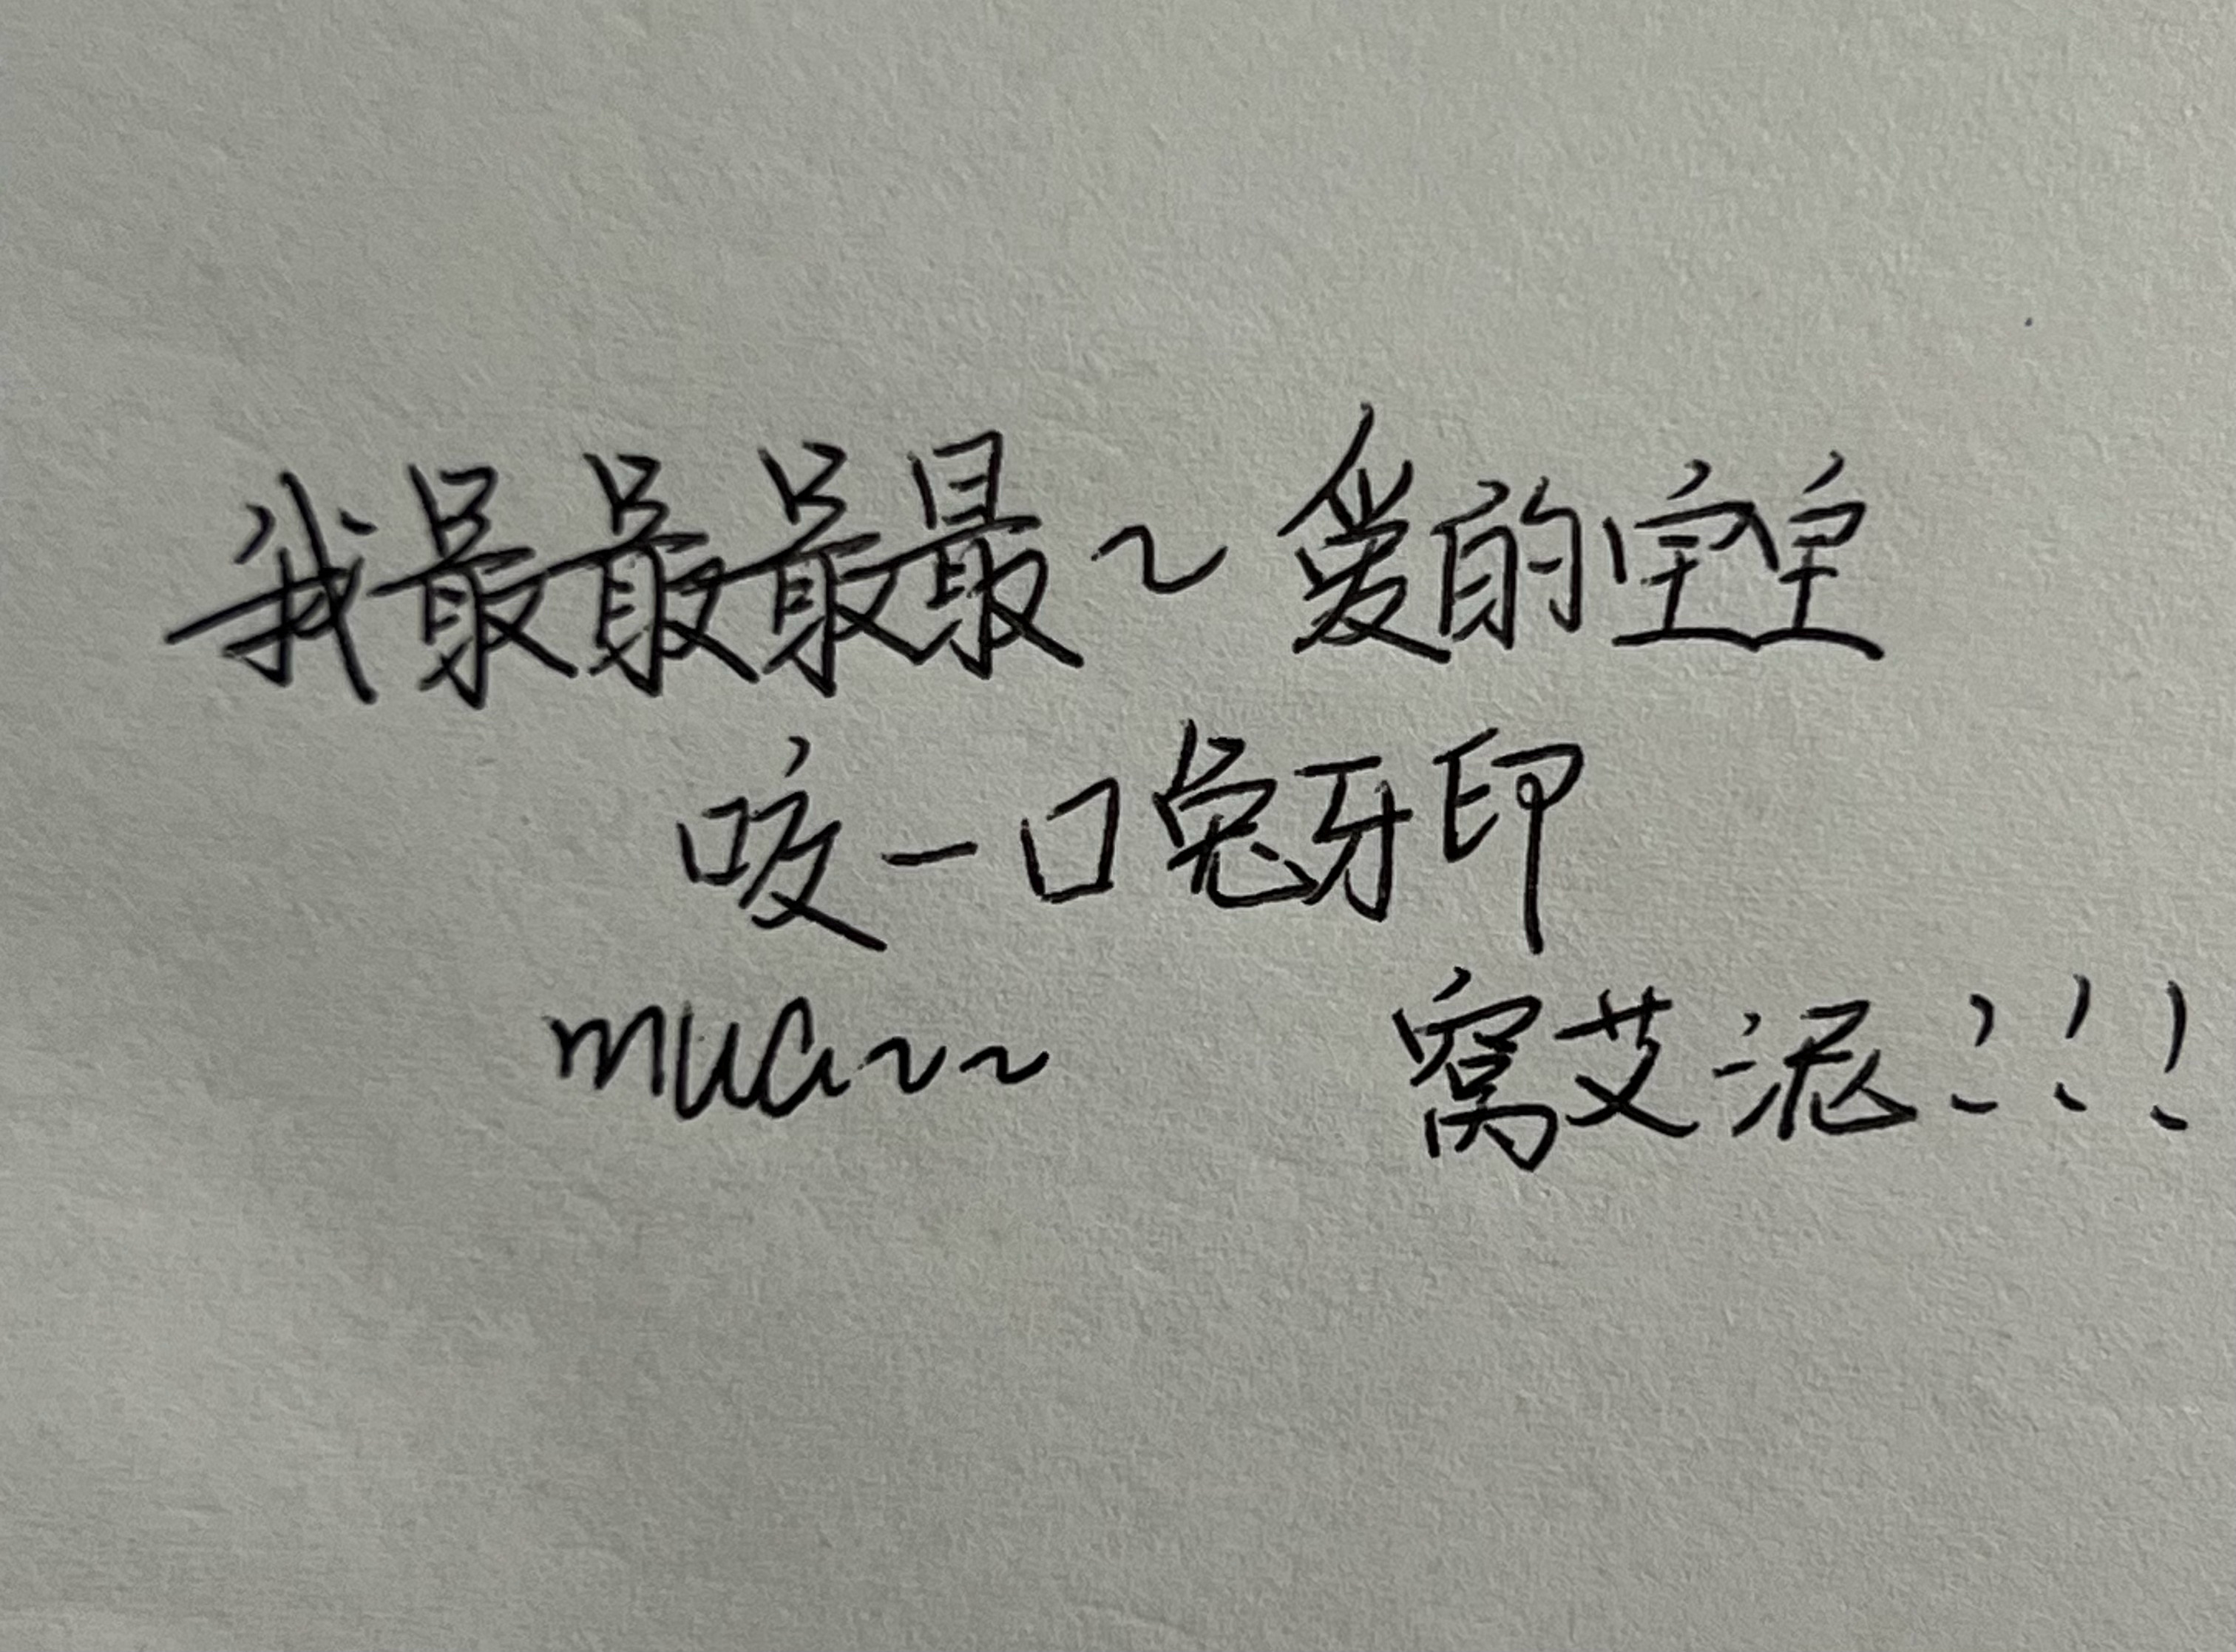 我最最最最~爱的宝宝
咬一口兔牙印
mua~~ 窝艾泥!!!